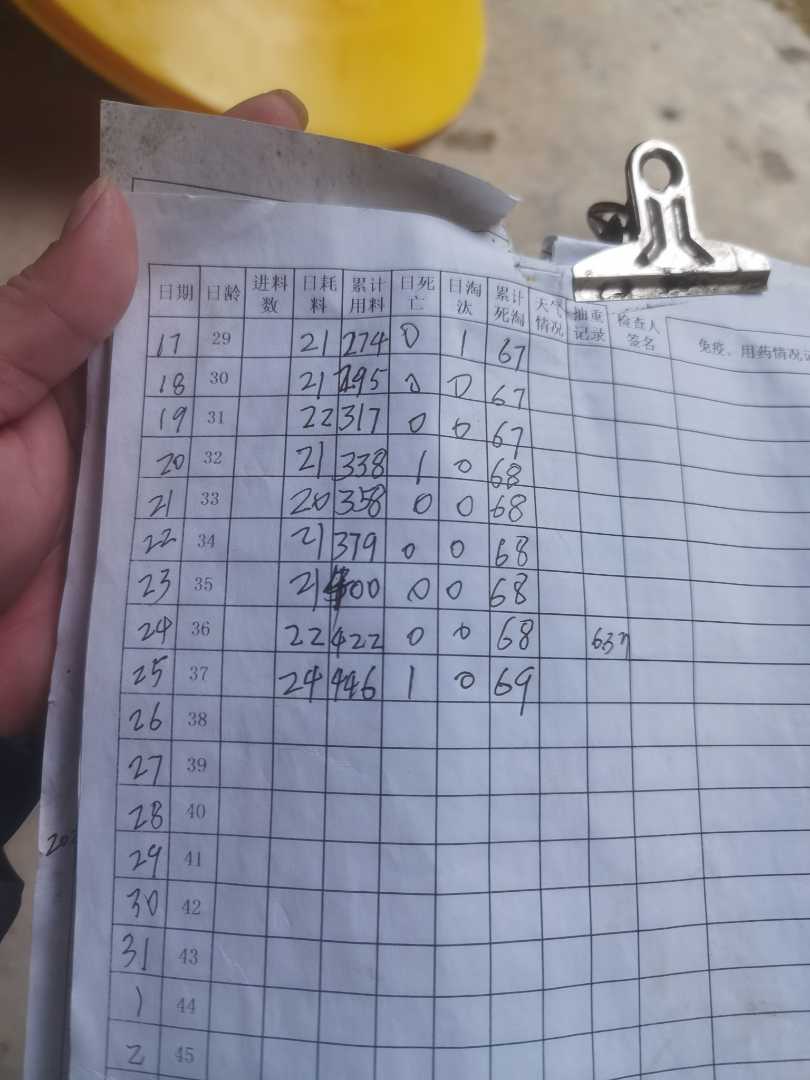 日期 日龄 进料数 日耗料 累计用料 日死亡 日淘汰 累计死淘 天气情况 抽重记录 检查人签名 免疫、用药情况记
17 29 21 274 0 1 67
18 30 21 295 0 0 67
19 31 22 317 0 0 67
20 32 21 338 1 0 68
21 33 20 358 0 0 68
22 34 21 379 0 0 68
23 35 21 400 0 0 68
24 36 22 422 0 0 68
25 37 24 446 1 0 69
26 38
27 39
28 40
29 41
30 42
31 43
1 44
2 45